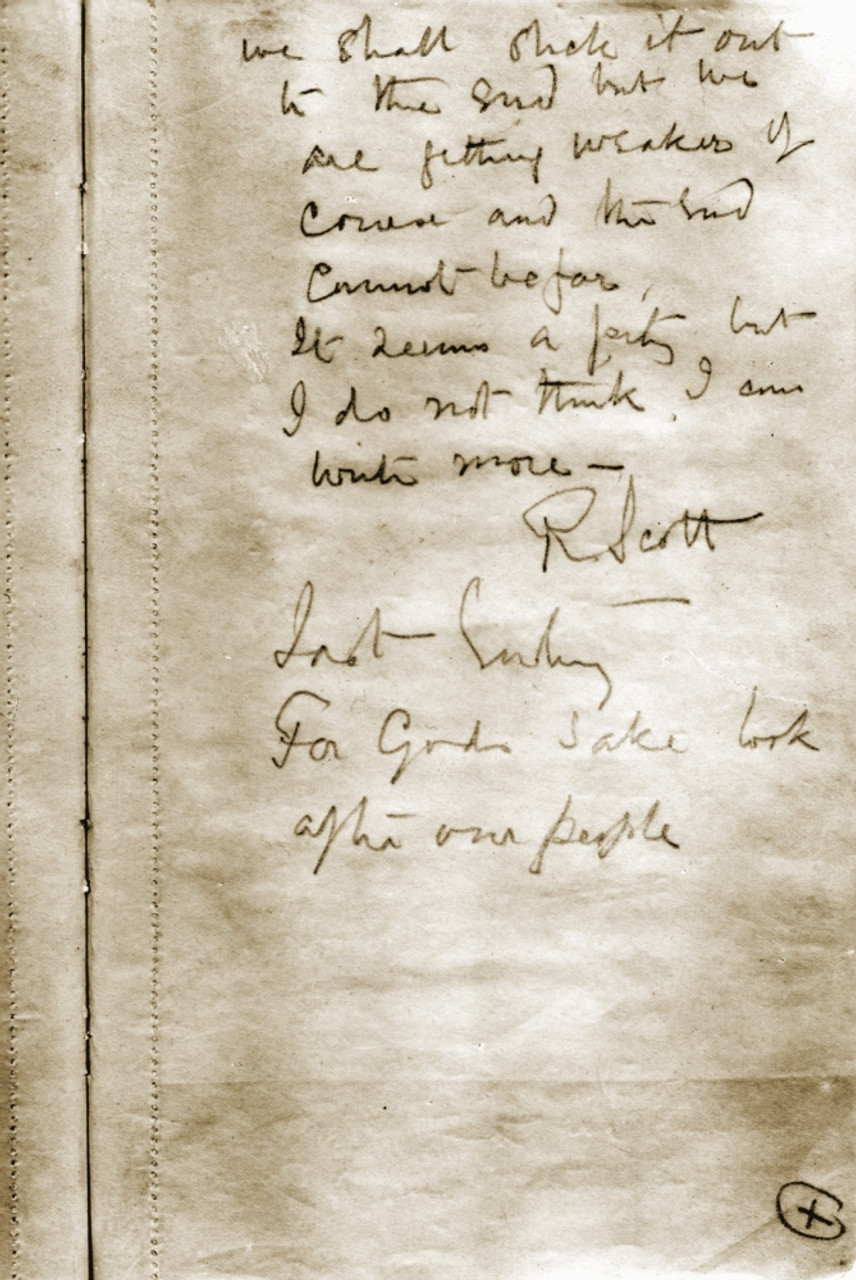 we shall stick it out
to the end but we
are getting weaker of
course and the end
cannot be far,
It seems a pity but
I do not think I can
write more —
R. Scott
Last Entry
For Gods sake look
after our people